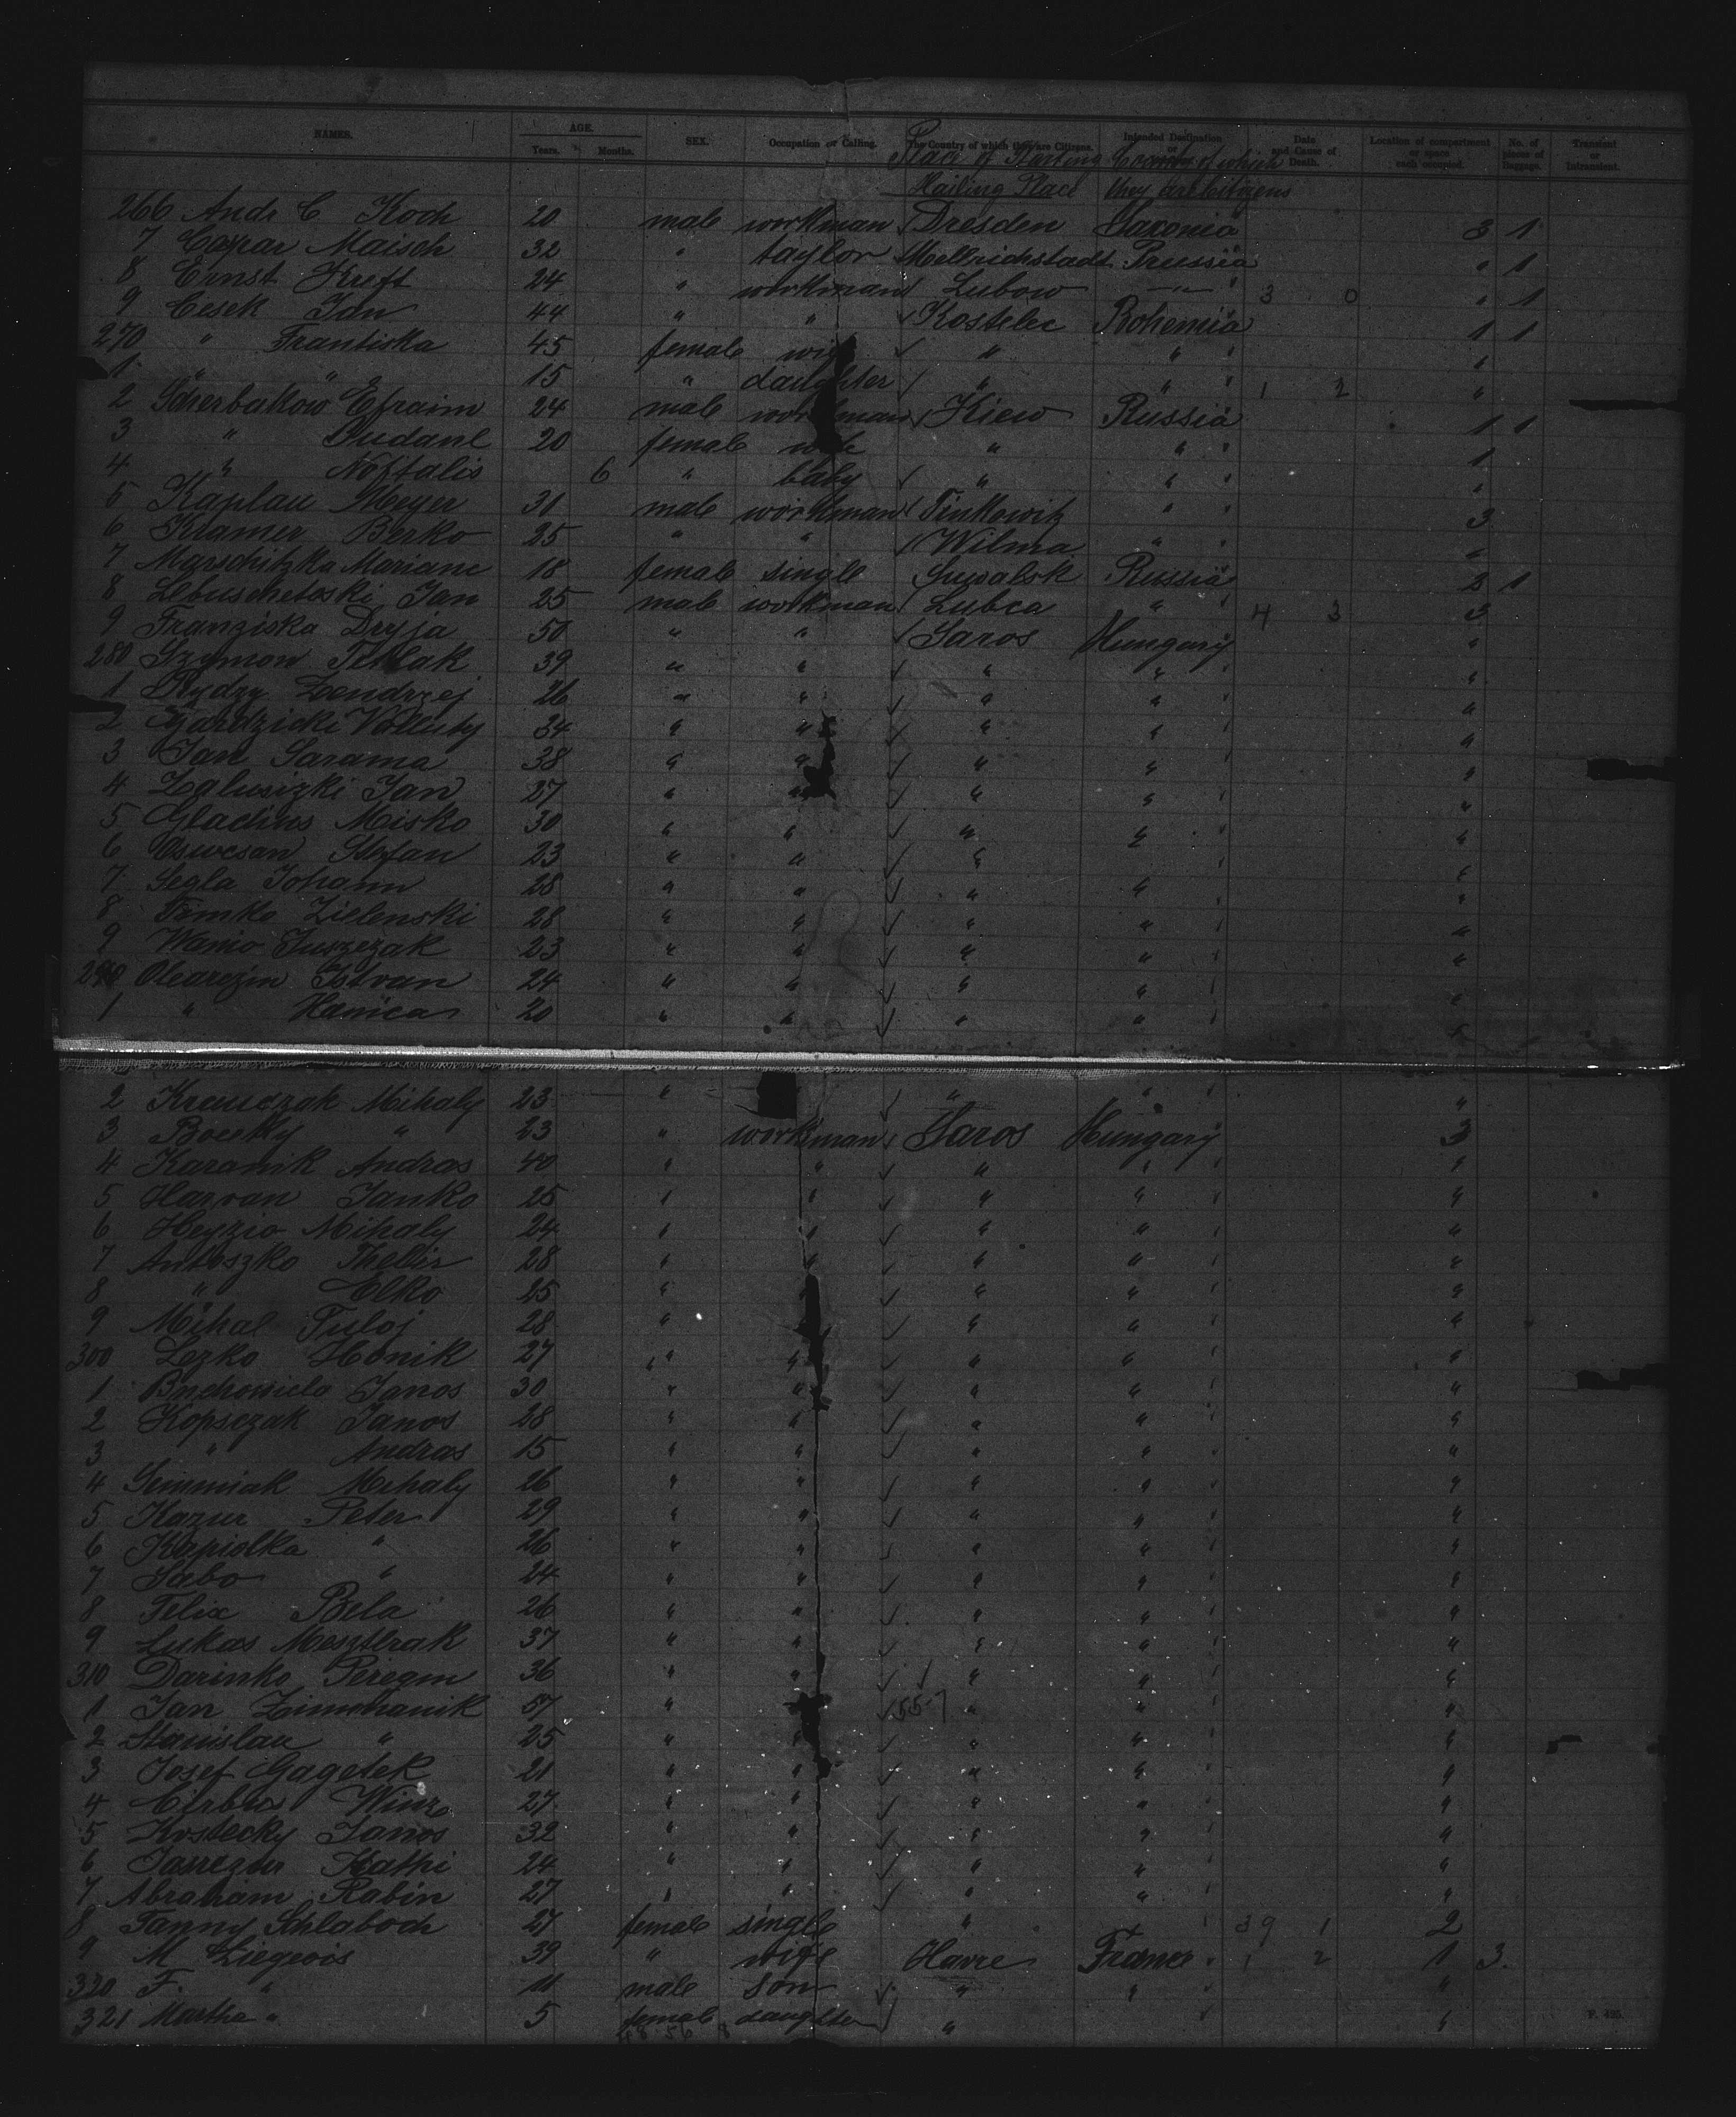 NAMES. AGE. Years. Months. SEX. Occupation or Calling. The Country of which they are Citizens. Intended Destination or Date and Cause of Death. Location of compartment or space each occupied. No. of pieces of Baggage. Transient or Intransient.
Place of Starting Country of which
Mailing Place they are citizens
266 Andr C Koch 20 male workman Dresden Saxonia 3 1
7 Caspar Maisch 32 " taylor Mellrichstadt Prussia " 1
8 Ernst Kreft 24 " workman Lubow — " — 3 0 " 1
9 Cesek Jan 44 " " Kostelec Bohemia 1 1
270 " Frantiska 45 female wife " " "
1 " " 15 " daughter " " 1 2 "
2 Scherbakow Efraim 24 male workman Kiew Russia 1 1
3 " Dudanl 20 female wife " " 1
4 " Noftalis 6 " baby " " "
5 Kaplau Meyer 31 male workman Tinkowitz " 3
6 Kramer Berko 25 " " Wilma " "
7 Marschitzka Mariane 18 female single Suwalsk Russia 2 1
8 Lebuschetoski Jan 25 male workman Lubca " 4 3 3
9 Franziska Dryja 50 " " Saros Hungary "
280 Szymon Tetlak 39 " " " " "
1 Rydzy Zendrzej 26 " " " " "
2 Gardzicki 34 " " " " "
3 Jan Sarama 38 " " " " "
4 Zalusizki Jan 27 " " " " "
5 Gladius Misko 30 " " " " "
6 Oswcsan Stefan 23 " " " " "
7 Segla Johann 28 " " " " "
8 Timko Zielenski 28 " " " " "
9 Wanio Juszczak 23 " " " " "
290 Olearczin Istvan 24 " " " " "
1 " Hanica 20 " " " " "
2 Krawczak Mihaly 23 " " " "
3 Bocky " 23 " workman Saros Hungary 3
4 Karanik Andras 40 " " " " "
5 Harvan Janko 25 " " " " "
6 Heyzio Mihaly 24 " " " " "
7 Antoszko Thellis 28 " " " " "
8 " Elko 25 " " " " "
9 Mihal Tuloj 28 " " " " "
300 Lezko Honik 27 " " " " "
1 Janos 30 " " " " "
2 Kopsczak Janos 28 " " " " "
3 " Andras 15 " " " " "
4 Simmiak Mihaly 26 " " " " "
5 Kazur Peter 29 " " " " "
6 Kapiolka " 26 " " " " "
7 Sabo " 24 " " " " "
8 Felix Bela 26 " " " " "
9 Lukas Mesztlrak 37 " " " " "
310 Darinko Peregm 36 " " " " "
1 Jan Zimohanik 57 " " 55-7 " " "
2 Stanislau " 25 " " " " "
3 Josef Gagetek 21 " " " " "
4 Cirbus 27 " " " " "
5 Kostecky Janos 32 " " " " "
6 Kathi 24 " " " " "
7 Abraham Rabin 27 " " " " "
8 Fanny Schlaboch 27 female single " " 39 1 2
9 M Liegeois 39 " wife Havre France 1 2 1 3.
320 F. " 11 male son " " "
321 Martha " 5 female daughter " "
F. 425.